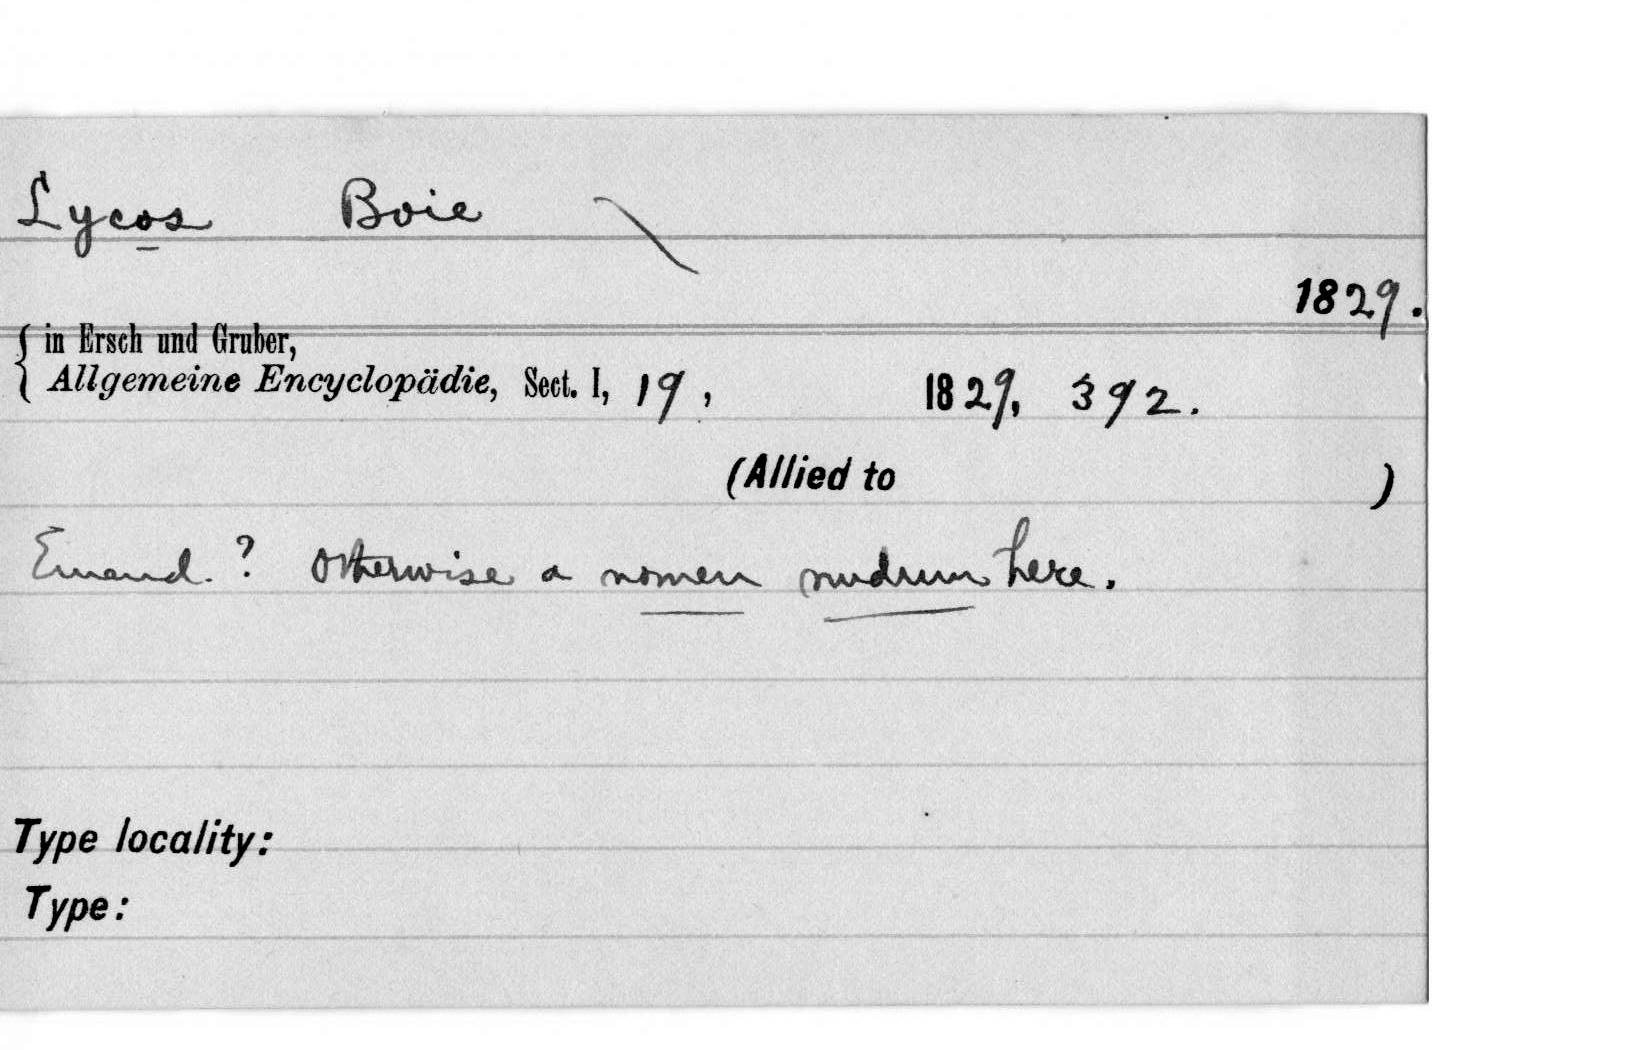 Lycos Boie
1829.
{ in Ersch und Gruber,
Allgemeine Encyclopädie, Sect. I, 19, 1829, 392.
(Allied to )
Emend. ? Otherwise a nomen nudum here.
Type locality:
Type: